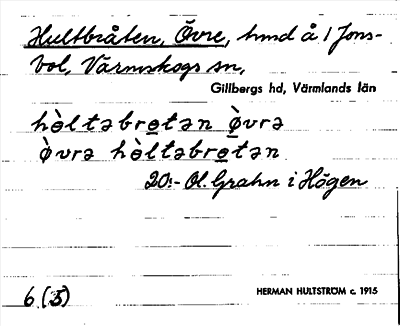 Hultbråten, Övre, hmd å 1 Jons-
bol, Värmskogs sn,
Gillbergs hd, Värmlands län
hὸltəbrotən òvrə
òvrə hὸltəbrotən
20:- Ol. Grahn i Högen
6 (5)
HERMAN HULTSTRÖM c. 1915